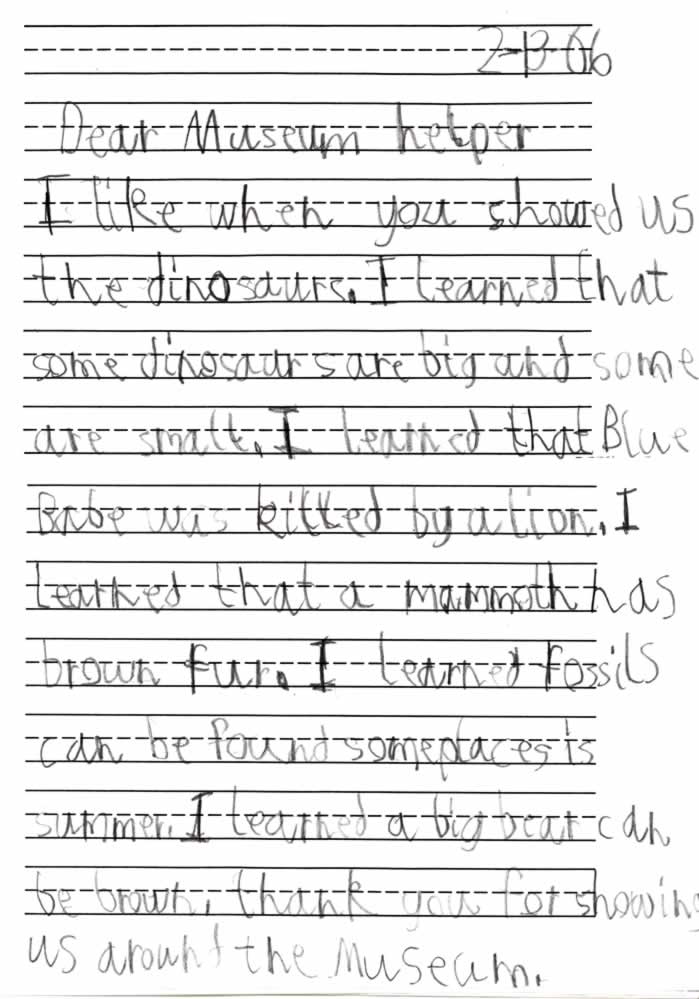 2-13-06
Dear Museum helper
I like when you showed us
the dinosaurs. I learned that
some dinosaurs are big and some
are small. I learned that Blue
Babe was killed by a lion. I
learned that a mammoth has
brown fur. I learned fossils
can be found someplaces is
summer. I learned a big bear can
be brown. thank you for showing
us around the Museum.